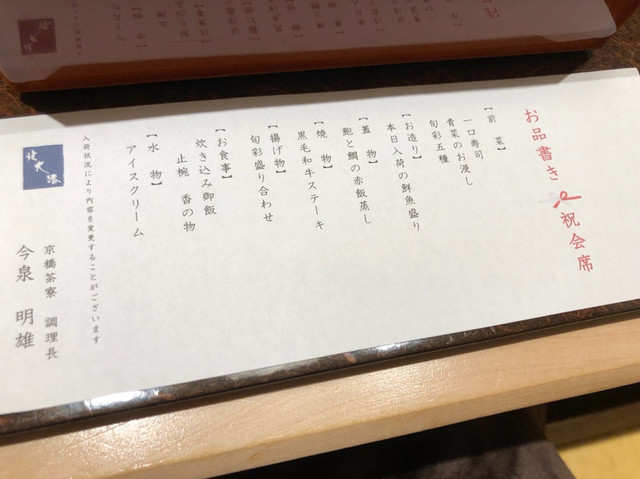 お品書き 祝会席
【前 菜】
一口寿司
青菜のお浸し
旬彩五種
【お造り】
本日入荷の鮮魚盛り
【蓋 物】
鮑と鯛の赤飯蒸し
【焼 物】
黒毛和牛ステーキ
【揚げ物】
旬彩盛り合わせ
【お食事】
炊き込み御飯
止椀 香の物
【水 物】
アイスクリーム
入荷状況により内容を変更することがございます
北大路
京橋茶寮 調理長
今泉 明雄